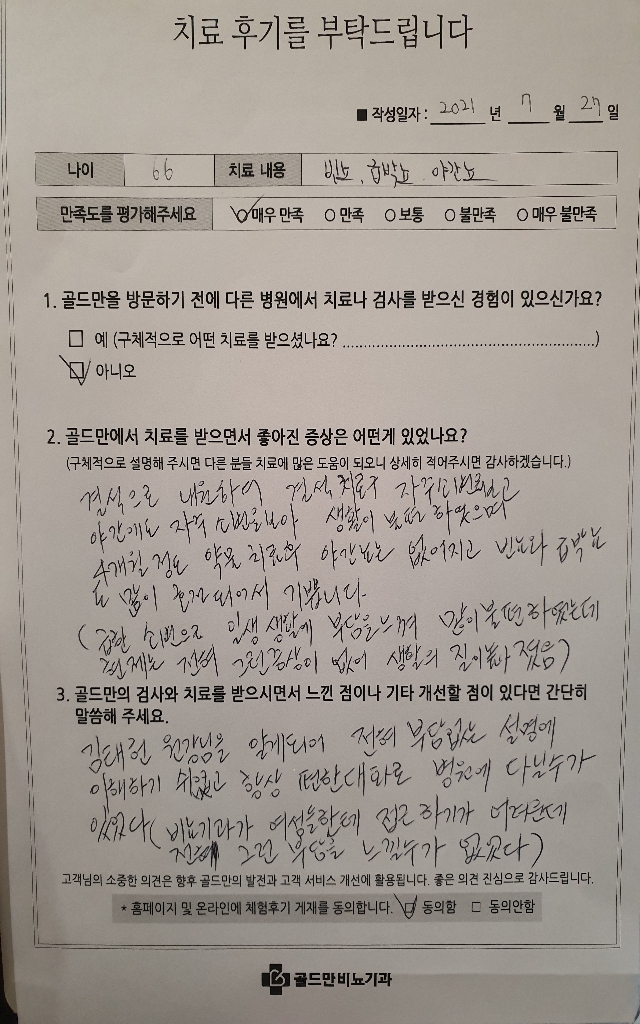 치료 후기를 부탁드립니다
■ 작성일자 : 2021 년 7 월 27 일
나이 66 치료 내용 빈뇨, 급박뇨 야간뇨
만족도를 평가해주세요 매우 만족 만족 보통 불만족 매우 불만족
1. 골드만을 방문하기 전에 다른 병원에서 치료나 검사를 받으신 경험이 있으신가요?
예 (구체적으로 어떤 치료를 받으셨나요? ........................................................)
아니오
2. 골드만에서 치료를 받으면서 좋아진 증상은 어떤게 있었나요?
(구체적으로 설명해 주시면 다른 분들 치료에 많은 도움이 되오니 상세히 적어주시면 감사하겠습니다.)
결석으로 내원하여 결석 치료후 자주 소변
야간에도 자주 소변을 보아 생활이 불편 하였으며
4개월 정도 약물 치료후 야간뇨는 없어지고 빈뇨와 급박뇨
도 많이 호전 되어서 기쁩니다.
(급한 소변으로 일생 생활에 부담을 느껴 많이 불편 하였는데
현제는 전혀 그런 증상이 없어 생활의 질이 높아 졌음)
3. 골드만의 검사와 치료를 받으시면서 느낀 점이나 기타 개선할 점이 있다면 간단히
말씀해 주세요.
김태헌 원장님을 알게되어 전혀 부담없는 설명에
이해하기 쉬웠고 항상 편한 대화로 병원에 다닐수가
있었다 (비뇨기과가 여성들한테 접근 하기가 어려운데
전혀 그런 부담을 느낄수가 없었다)
고객님의 소중한 의견은 향후 골드만의 발전과 고객 서비스 개선에 활용됩니다. 좋은 의견 진심으로 감사드립니다.
* 홈페이지 및 온라인에 체험후기 게재를 동의합니다. 동의함 □ 동의안함
골드만비뇨기과